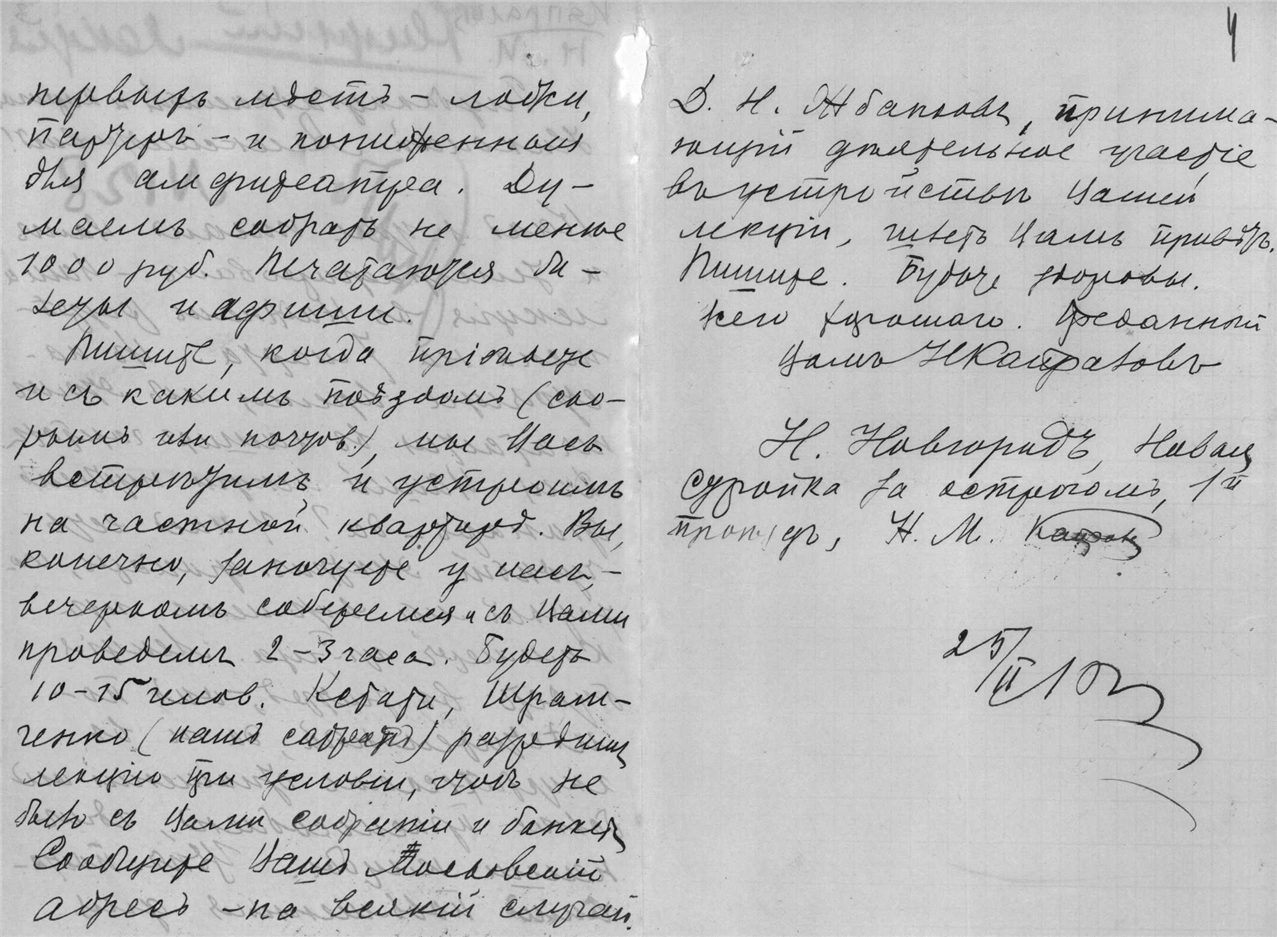 первыхъ мѣстъ – ложи,
партеръ – и пониженный
для амфитеатра. Ду-
маемъ собрать не менѣе
1000 руб. Печатаются би-
леты и афиши.
Пишите, когда пріѣдете
и съ какимъ поѣздомъ (ско-
рымъ или почтов.), мы Васъ
встрѣтимъ и устроимъ
на частной квартирѣ. Вы,
конечно, заночуете у насъ, –
вечеркомъ соберемся и съ Вами
проведемъ 2–3 часа. Будетъ
10–15 челов. Кстати, Шрам-
ченко (нашъ сатрапъ) разрѣшилъ
лекцію при условіи, чтобъ не
было съ Вами собраній и банкета
Сообщите Вашъ Московскій
адресъ – на всякій случай.
4
Д. Н. Жбанковъ, принима-
ющій дѣятельное участіе
въ устройствѣ Вашей
лекціи, шлетъ Вамъ привѣтъ.
Пишите. Будьте здоровы.
Всего хорошаго. Преданный
Вамъ
Н. Новгородъ, Новая
стройка за острогомъ, 1й
Н. М.
25/II